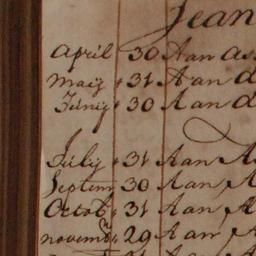 Jean
April 30 Aan As
Maij 31 Aan d
Junij 30 Aan d
Julij 31 Aan A
Septem 30 Aan A
Octob 31 Aan A
novemb 29 Aan A